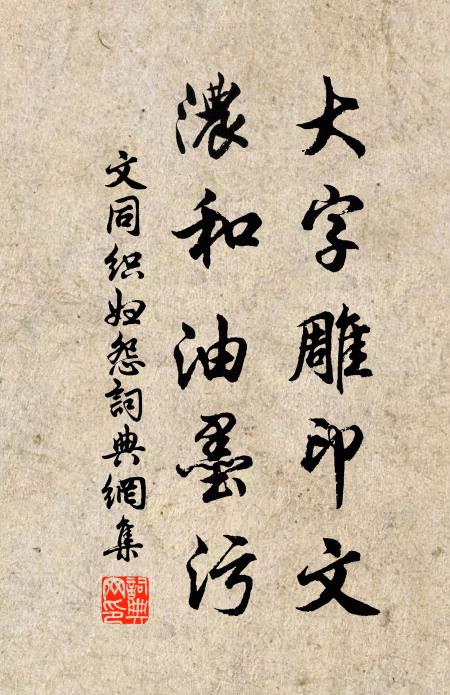 大字雕印文
濃和油墨污
文同織婦怨詞典網集
詞典